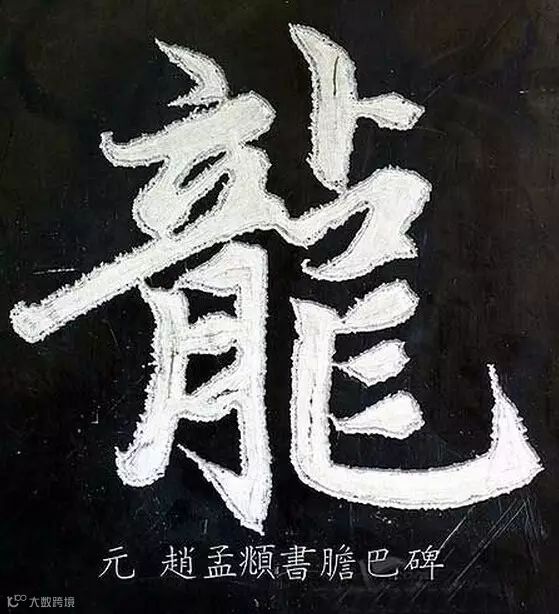 龍
元 趙孟頫書膽巴碑
大数跨境